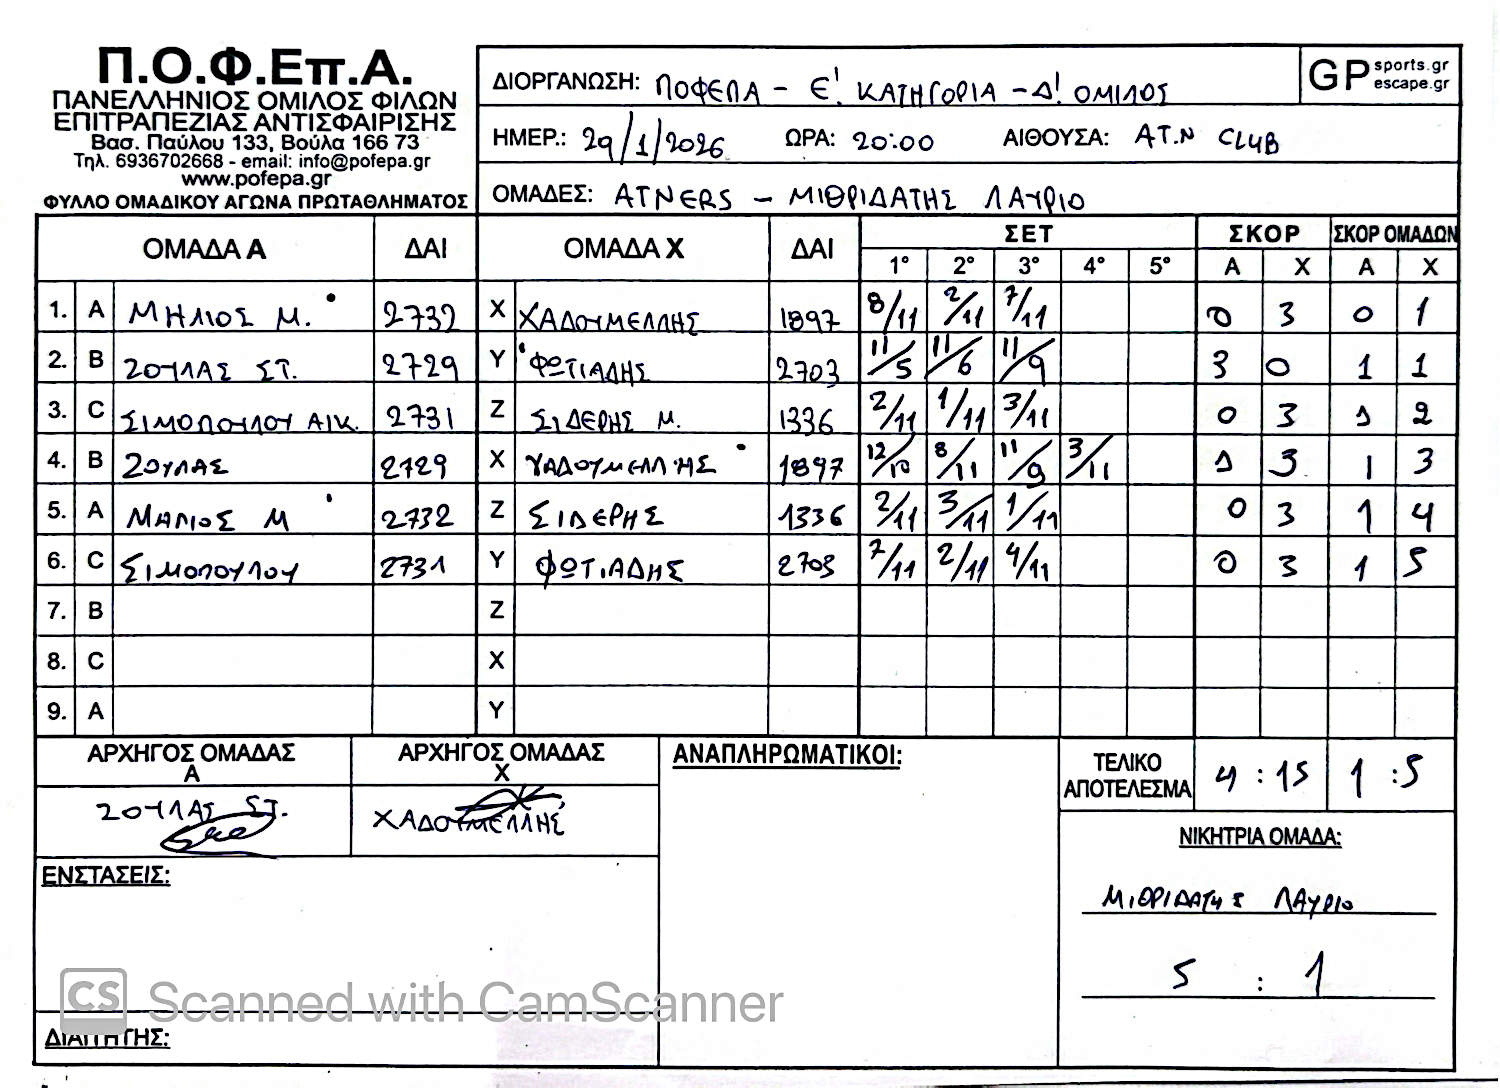 Π.Ο.Φ.Επ.Α.
ΠΑΝΕΛΛΗΝΙΟΣ ΟΜΙΛΟΣ ΦΙΛΩΝ
ΕΠΙΤΡΑΠΕΖΙΑΣ ΑΝΤΙΣΦΑΙΡΙΣΗΣ
Βασ. Παύλου 133, Βούλα 166 73
Τηλ. 6936702668 - email: info@pofepa.gr
www.pofepa.gr
ΦΥΛΛΟ ΟΜΑΔΙΚΟΥ ΑΓΩΝΑ ΠΡΩΤΑΘΛΗΜΑΤΟΣ
ΔΙΟΡΓΑΝΩΣΗ: ΠΟΦΕΠΑ - Ε' ΚΑΤΗΓΟΡΙΑ - Δ' ΟΜΙΛΟΣ
GP sports.gr escape.gr
ΗΜΕΡ.: 29/1/2026 ΩΡΑ: 20:00 ΑΙΘΟΥΣΑ: AT.N CLUB
ΟΜΑΔΕΣ: ATNERS - ΜΙΘΡΙΔΑΤΗΣ ΛΑΥΡΙΟ
ΟΜΑΔΑ Α ΔΑΙ ΟΜΑΔΑ Χ ΔΑΙ ΣΕΤ ΣΚΟΡ ΣΚΟΡ ΟΜΑΔΩΝ
1° 2° 3° 4° 5° Α Χ Α Χ
1. A ΜΗΛΙΟΣ Μ. 2732 X ΧΑΔΟΥΜΕΛΛΗΣ 1897 8/11 2/11 7/11 0 3 0 1
2. B ΖΟΥΛΑΣ ΣΤ. 2729 Y ΦΩΤΙΑΔΗΣ 2703 11/5 11/6 11/9 3 0 1 1
3. C ΣΙΜΟΠΟΥΛΟΥ ΑΙΚ. 2731 Z ΣΙΔΕΡΗΣ Μ. 1336 2/11 1/11 3/11 0 3 1 2
4. B ΖΟΥΛΑΣ 2729 X ΧΑΔΟΥΜΕΛΛΗΣ 1897 12/10 8/11 11/9 3/11 1 3 1 3
5. A ΜΗΛΙΟΣ Μ 2732 Z ΣΙΔΕΡΗΣ 1336 2/11 3/11 1/11 0 3 1 4
6. C ΣΙΜΟΠΟΥΛΟΥ 2731 Y ΦΩΤΙΑΔΗΣ 2703 7/11 2/11 4/11 0 3 1 5
7. B Z
8. C X
9. A Y
ΑΡΧΗΓΟΣ ΟΜΑΔΑΣ Α
ΖΟΥΛΑΣ ΣΤ.
ΑΡΧΗΓΟΣ ΟΜΑΔΑΣ Χ
ΧΑΔΟΥΜΕΛΛΗΣ
ΑΝΑΠΛΗΡΩΜΑΤΙΚΟΙ:
ΤΕΛΙΚΟ ΑΠΟΤΕΛΕΣΜΑ 4 : 15 1 : 5
ΝΙΚΗΤΡΙΑ ΟΜΑΔΑ:
ΜΙΘΡΙΔΑΤΗΣ ΛΑΥΡΙΟ
5 : 1
ΕΝΣΤΑΣΕΙΣ:
CS Scanned with CamScanner
ΔΙΑΙΤΗΤΗΣ: